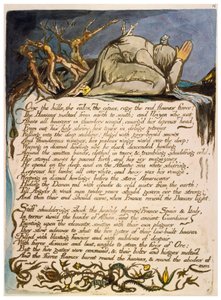 Over the hills, the vales, the cities, rage the red flames fierce;
The Heavens melted from north to south; and Urizen who sat
Above all heavens in thunders wrap'd, emerg'd his leprous head
From out his holy shrine, his tears in deluge piteous
Falling into the deep sublime! flag'd with grey-brow'd snows
And thunderous visages, his jealous wings wav'd over the deep;
Weeping in dismal howling woe he dark descended howling
Around the smitten bands, clothed in tears & trembling shudd'ring cold.
His stored snows he poured forth, and his icy magazines
He open'd on the deep, and on the Atlantic sea white shiv'ring.
Leprous his limbs, all over white, and hoary was his visage.
Weeping in dismal howlings before the stern Americans
Hiding the Demon red with clouds & cold mists from the earth;
Till Angels & weak men twelve years should govern o'er the strong:
And then their end should come, when France reciev'd the Demons light.
Stiff shudderings shook the heav'nly thrones! France Spain & Italy,
In terror view'd the bands of Albion, and the ancient Guardians
Fainting upon the elements, smitten with their own plagues
They slow advance to shut the five gates of their law-built heaven
Filled with blasting fancies and with mildews of despair
With fierce disease and lust, unable to stem the fires of Orc;
But the five gates were consum'd, & their bolts and hinges melted
And the fierce flames burnt round the heavens, & round the abodes of men
FINIS